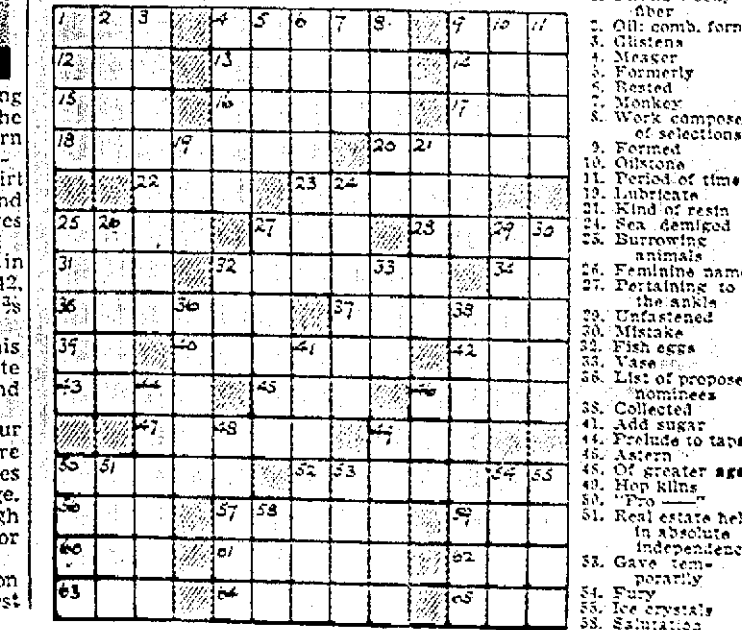 ng
he
rn
-
irt
nd
res
in
12,
as
his
te
nd
ur
re
es
ge.
gh
or
on
rst
1 2 3 4 5 6 7 8 9 10 11
12 13 14
15 16 17
18 19 20 21
22 23 24
25 26 27 28 29 30
31 32 33 34
35 36 37 38
39 40 41 42
43 44 45 46
47 48 49
50 51 52 53 54 55
56 57 58 59
60 61 62
63 64 65
fiber
2. Oil: comb. form
3. Glistens
4. Meager
5. Formerly
6. Rested
7. Monkey
8. Work compose
of selections
9. Formed
10. Oilstone
11. Period of time
19. Lubricate
21. Kind of resin
24. Sea demigod
25. Burrowing
animals
26. Feminine name
27. Pertaining to
the ankle
29. Unfastened
30. Mistake
32. Fish eggs
33. Vase
36. List of propose
nominees
38. Collected
41. Add sugar
44. Prelude to taps
46. Astern
48. Of greater age
49. Hop kilns
50. "Pro ——"
51. Real estate hel
in absolute
independenc
53. Gave tem-
porarily
54. Fury
55. Ice crystals
58. Salutation